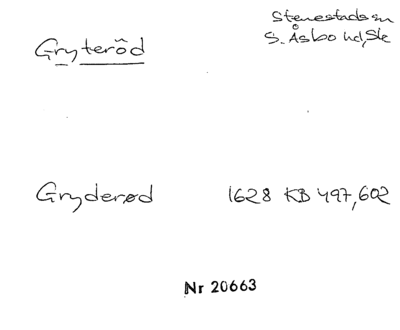 Gryteröd
Stenestads sn
S. Åsbo hd, Sk
Gryderød 1628 KB 497,602
Nr 20663